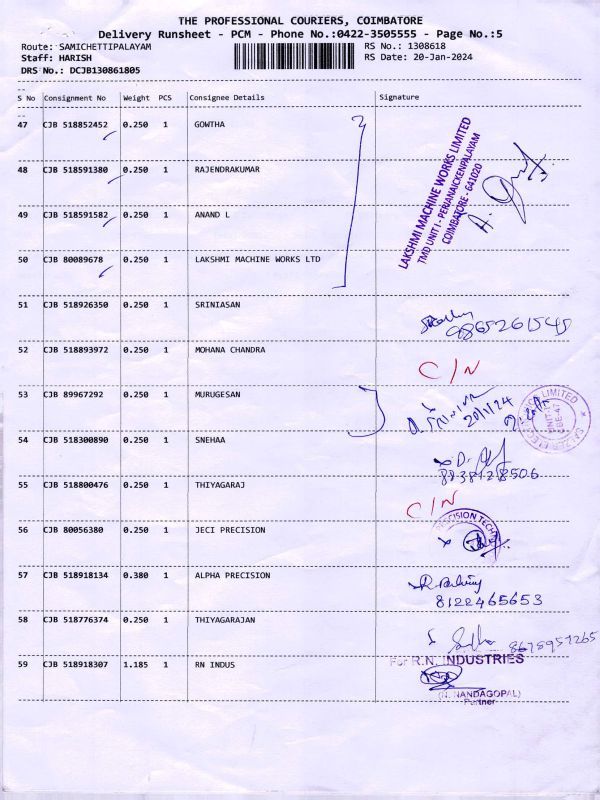 THE PROFESSIONAL COURIERS, COIMBATORE
Delivery Runsheet - PCM - Phone No.:0422-3505555 - Page No.:5
Route: SAMICHETTIPALAYAM RS No.: 1308618
Staff: HARISH RS Date: 20-Jan-2024
DRS No.: DCJB130861805
S No Consignment No Weight PCS Consignee Details Signature
47 CJB 518852452 0.250 1 GOWTHA
48 CJB 518591380 0.250 1 RAJENDRAKUMAR
49 CJB 518591582 0.250 1 ANAND L
50 CJB 80089678 0.250 1 LAKSHMI MACHINE WORKS LTD
LAKSHMI MACHINE WORKS LIMITED
TMD UNIT I - PERIANAICKENPALAYAM
COIMBATORE - 641020
51 CJB 518926350 0.250 1 SRINIASAN
9865261545
52 CJB 518893972 0.250 1 MOHANA CHANDRA
C/N
53 CJB 89967292 0.250 1 MURUGESAN
20/1/24
54 CJB 518300890 0.250 1 SNEHAA
8838128506
55 CJB 518800476 0.250 1 THIYAGARAJ
C/N
56 CJB 80056380 0.250 1 JECI PRECISION
PRECISION TECH
57 CJB 518918134 0.380 1 ALPHA PRECISION
8122465653
58 CJB 518776374 0.250 1 THIYAGARAJAN
8675957265
59 CJB 518918307 1.185 1 RN INDUS
For R.N. INDUSTRIES
(N. NANDAGOPAL)
Partner